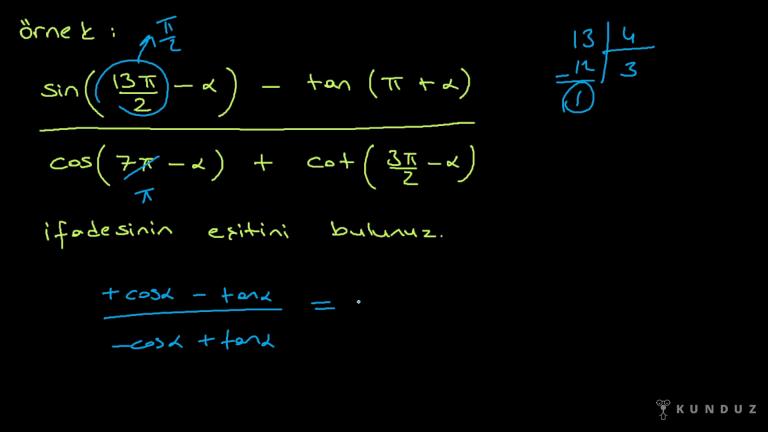 örnek :
π/2
sin(13π/2 - α) - tan (π + α)
cos(7π - α) + cot(3π/2 - α)
π
ifadesinin eşitini bulunuz.
+cosα - tanα
=
-cosα + tanα
13 4
-12 3
1
KUNDUZ